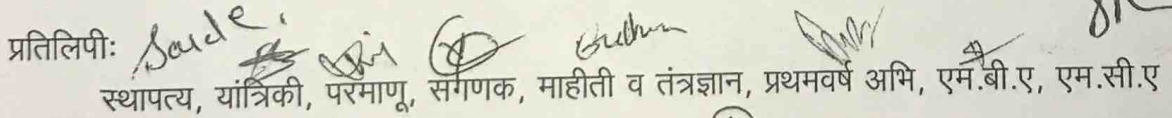 प्रतिलिपी:
स्थापत्य, यांत्रिकी, परमाणू, संगणक, माहीती व तंत्रज्ञान, प्रथमवर्ष अभि, एम.बी.ए, एम.सी.ए